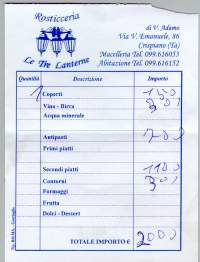 Rosticceria
Le Tre Lanterne
di V. Adamo
Via V. Emanuele, 86
Crispiano (Ta)
Macelleria Tel. 099.616053
Abitazione Tel. 099.616152
Quantità Descrizione Importo
1 Coperti 150
Vino - Birra 300
Acqua minerale
Antipasti 200
Primi piatti
Secondi piatti 1100
Contorni 300
Formaggi
Frutta
Dolci - Dessert
TOTALE IMPORTO € 2000